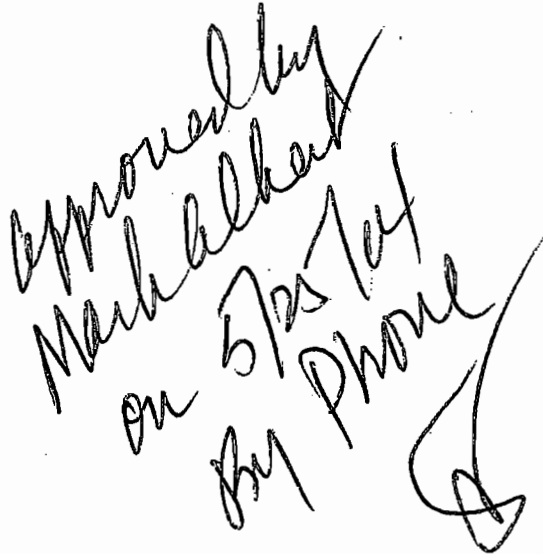 approved by
Mark Albert
on 5/25/04
By Phone